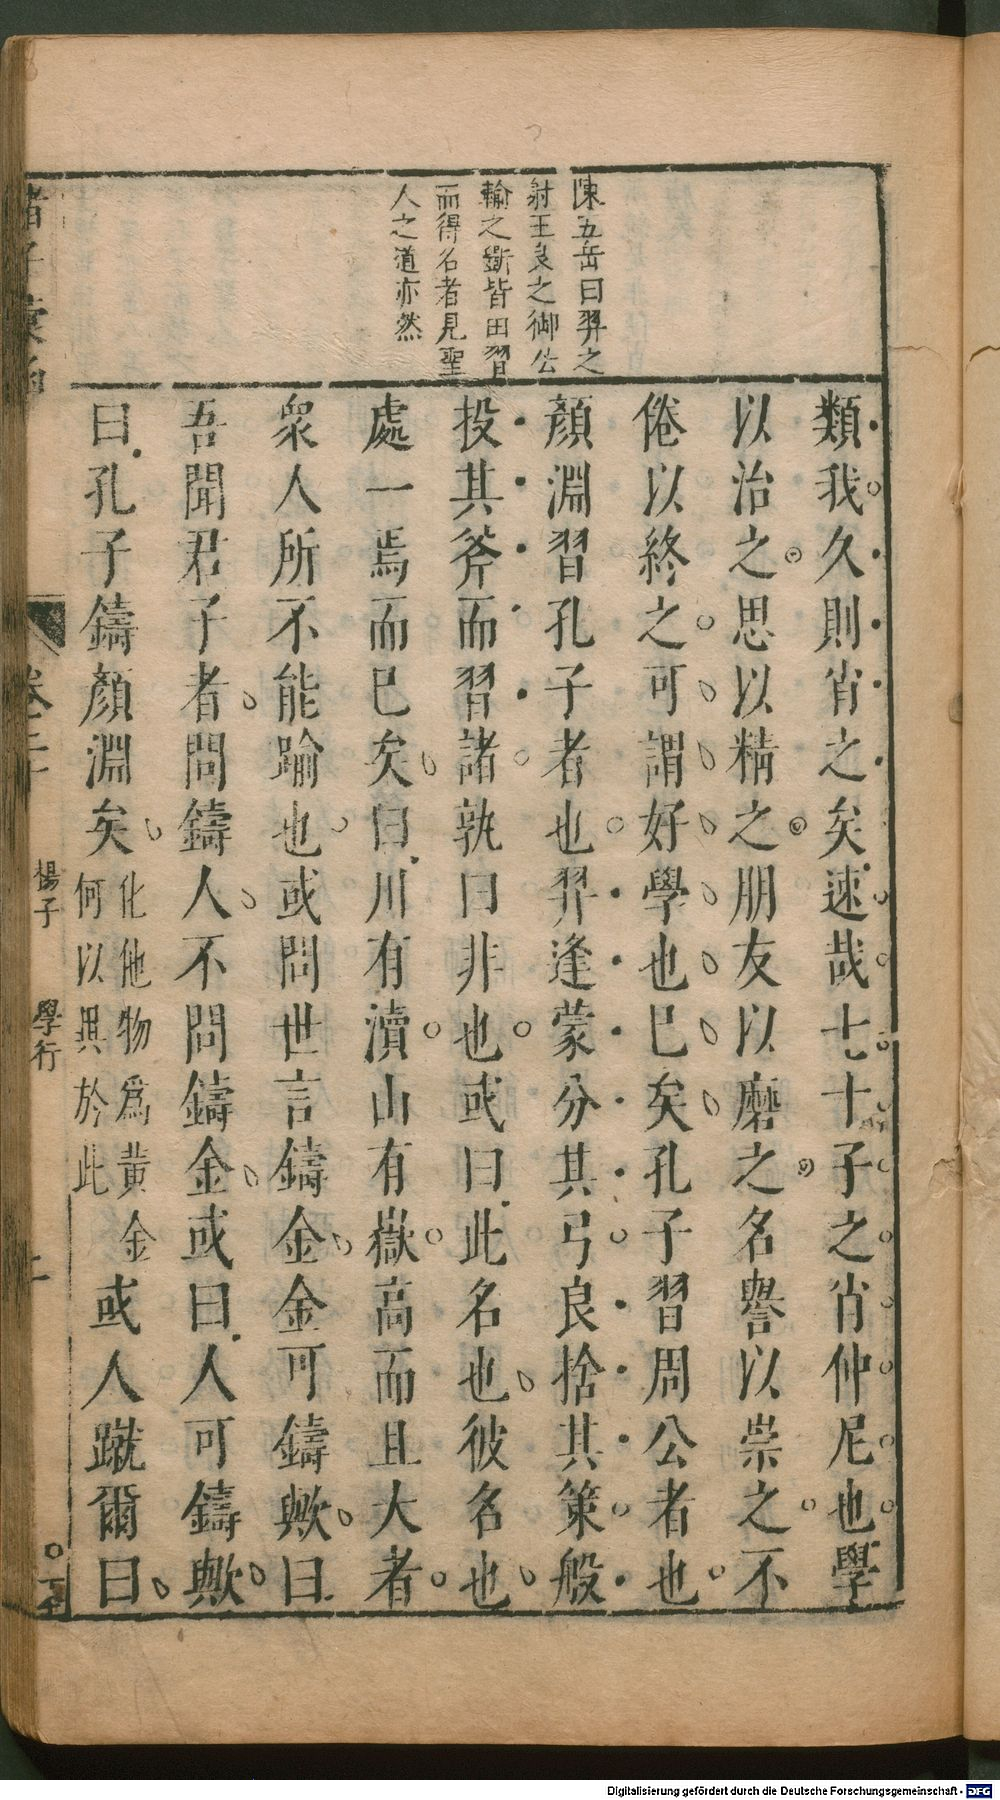 陳五岳曰羿之
射王良之御公
輸之斲皆因習
而得名者見聖
人之道亦然
類我久則肖之矣速哉七十子之肖仲尼也學
以治之思以精之朋友以磨之名譽以崇之不
倦以終之可謂好學也巳矣孔子習周公者也
顏淵習孔子者也羿逢蒙分其弓良捨其策般
投其斧而習諸孰曰非也或曰此名也彼名也
處一焉而巳矣曰川有瀆山有嶽高而且大者
衆人所不能踰也或問世言鑄金金可鑄歟曰
吾聞君子者問鑄人不問鑄金或曰人可鑄歟
曰孔子鑄顏淵矣
化他物爲黄金
何以異於此
或人蹴爾曰
諸子彙函
卷二十
楊子
學行
二
Digitalisierung gefördert durch die Deutsche Forschungsgemeinschaft - DFG